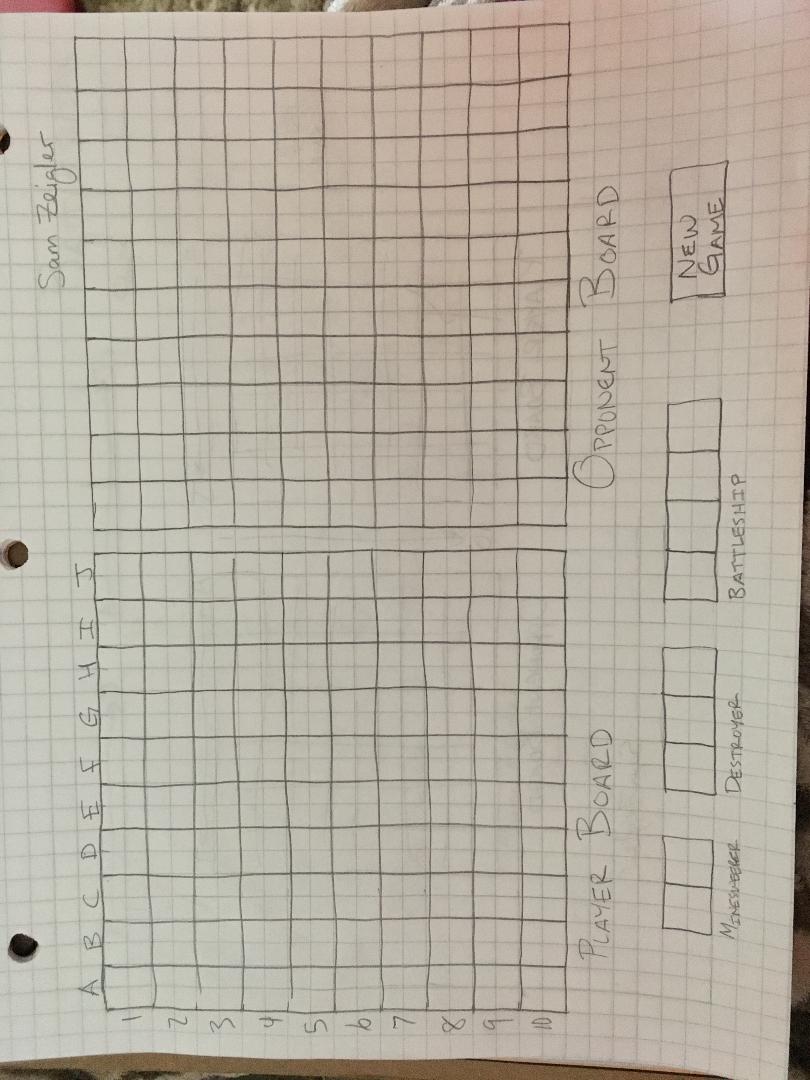 Sam Zeigler
A B C D E F G H I J
1
2
3
4
5
6
7
8
9
10
PLAYER BOARD OPPONENT BOARD
NEW
GAME
MINESWEEPER DESTROYER BATTLESHIP